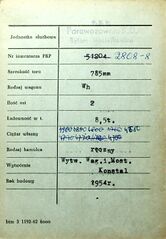 Jednostka służbowa
P K P
Parowozownia
Nr inwentarza PKP 51204. 2808-8
Szerokość toru 785mm
Rodzaj wagonu Wh
Ilość osi 2
Ładowność w t. 8,5t.
Ciężar własny
Rodzaj hamulca ręczny
Wytwórnia Wytw. Wag.i,Most.
Konstal
Rok budowy 1954r.